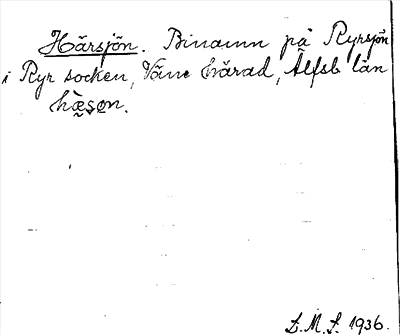 Härsjön. Binamn på Ryrsjön
i Ryr socken, Väne härad, Älfsb län
hæ̀ṣøn.
L. M. S. 1936.